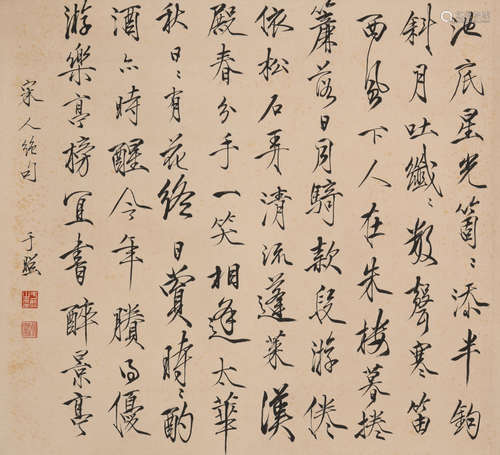 池底星光箇〻添半鉤
斜月吐纖〻数聲寒笛
西風下人在朱樓暮捲
簾落日同騎款段游倦
依松石弄清流蓬萊漢
殿春分手一笑相逢太華
秋日〻有花終日賞時〻酌
酒亦時醒今年賸得優
游樂亭榜宜書醉景亭
宋人絕句
于照